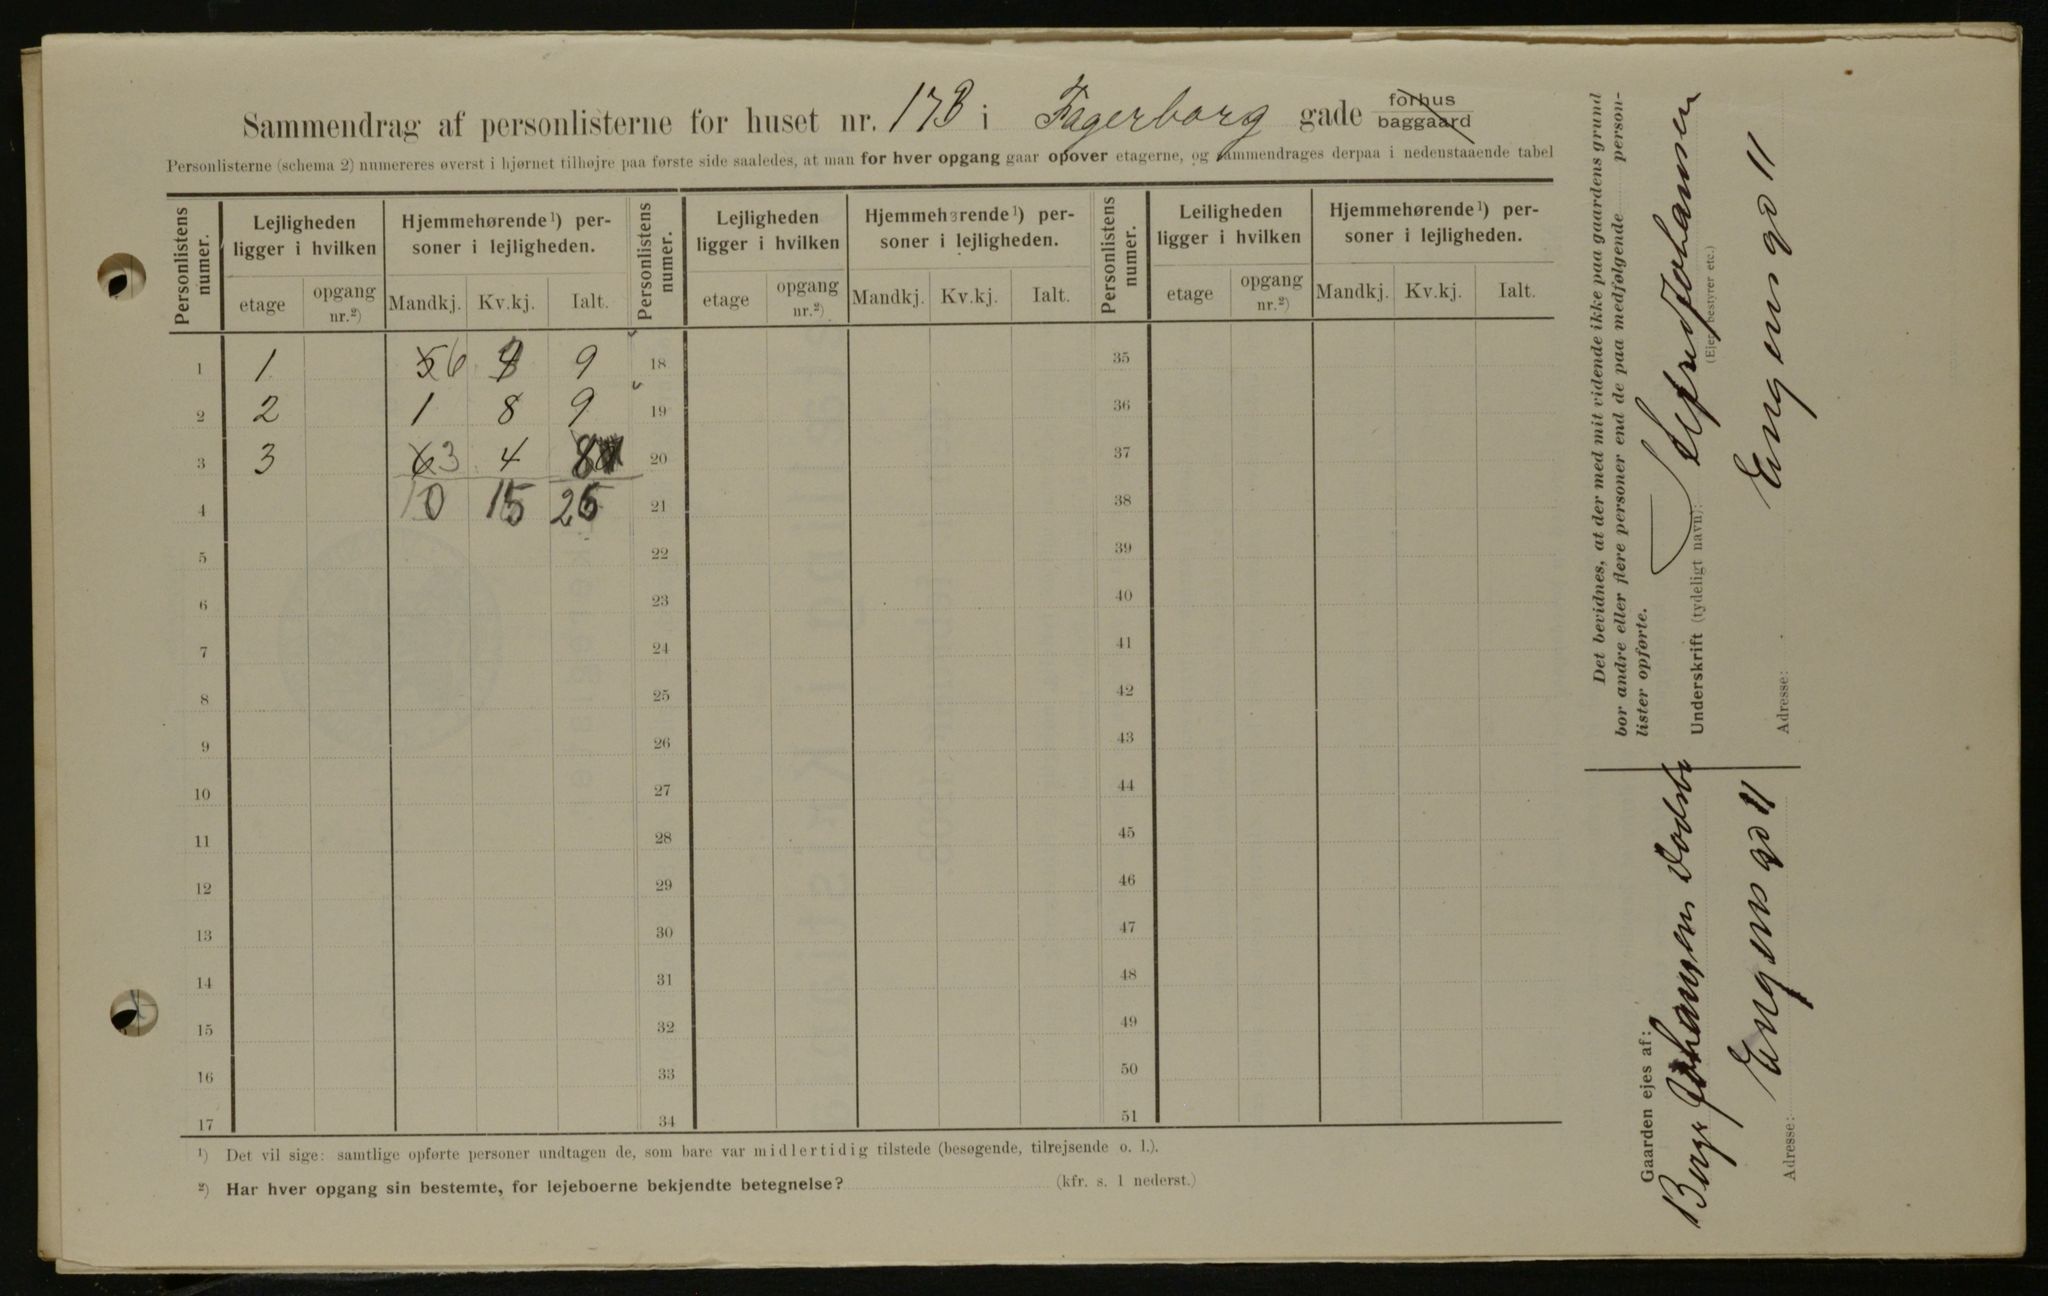 Sammendrag af personlisterne for huset nr. 17B i Fagerborg gade forhus baggaard
Personlisterne (schema 2) numereres øverst i hjørnet tilhøjre paa første side saaledes, at man for hver opgang gaar opover etagerne, og sammendrages derpaa i nedenstaaende tabel
Personlistens numer. Lejligheden ligger i hvilken Hjemmehørende¹) personer i lejligheden. Personlistens numer. Lejligheden ligger i hvilken Hjemmehørende¹) personer i lejligheden. Personlistens numer. Leiligheden ligger i hvilken Hjemmehørende¹) personer i lejligheden.
etage opgang nr.²) Mandkj. Kv.kj. Ialt. etage opgang nr.²) Mandkj. Kv.kj. Ialt. etage opgang nr.²) Mandkj. Kv.kj. Ialt.
1 1 56 9 18 35
2 2 1 8 9 19 36
3 3 63 4 20 37
4 10 15 25 21 38
5 22 39
6 23 40
7 24 41
8 25 42
9 26 43
10 27 44
11 28 45
12 29 46
13 30 47
14 31 48
15 32 49
16 33 50
17 34 51
¹) Det vil sige: samtlige opførte personer undtagen de, som bare var midlertidig tilstede (besøgende, tilrejsende o. l.).
²) Har hver opgang sin bestemte, for lejeboerne bekjendte betegnelse? (kfr. s. 1 nederst.)
Det bevidnes, at der med mit vidende ikke paa gaardens grund
bor andre eller flere personer end de paa medfølgende person-
lister opførte.
Underskrift (tydeligt navn): Alfred Johansen
(Ejer, bestyrer etc.)
Adresse: Engens gd 11
Gaarden ejes af:
Johansen
Adresse: Engens gd 11